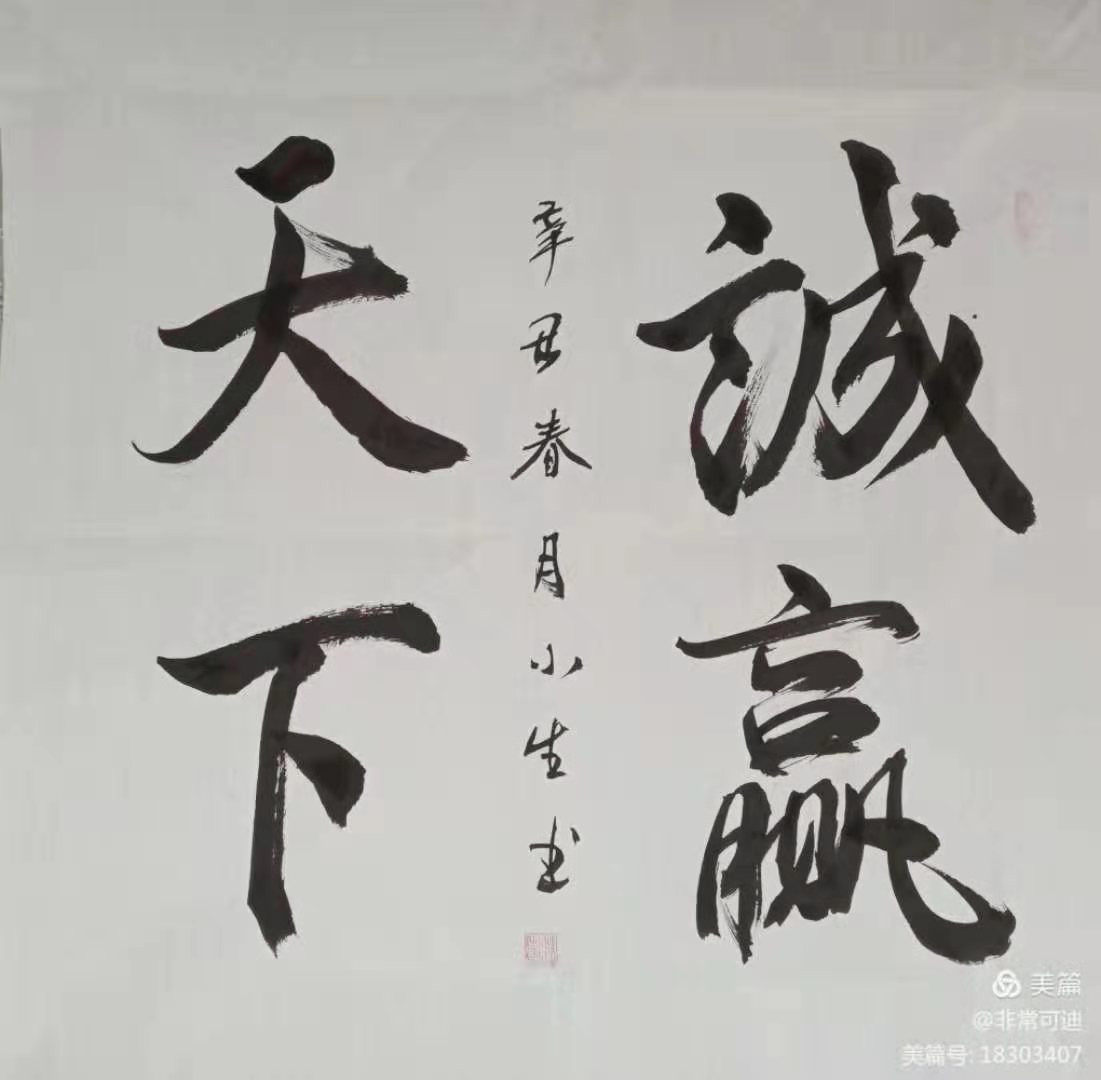 誠赢
辛丑春月小生书
天下
美篇
@非常可迪
美篇号: 18303407